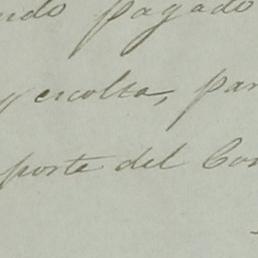 ndo pagado
y escolta, par
porte del Con